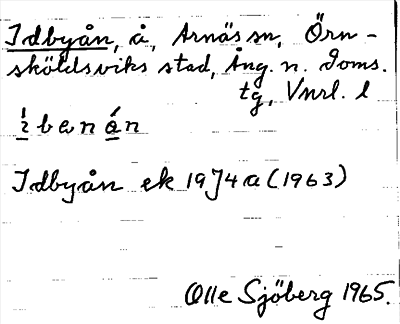 Idbyån, å, Arnäs sn, Örn-
sköldsviks stad, Ång. n. Doms.
tg, Vnrl. l
ı́ b e n án
Idbyån ek 19J4a (1963)
Olle Sjöberg 1965.